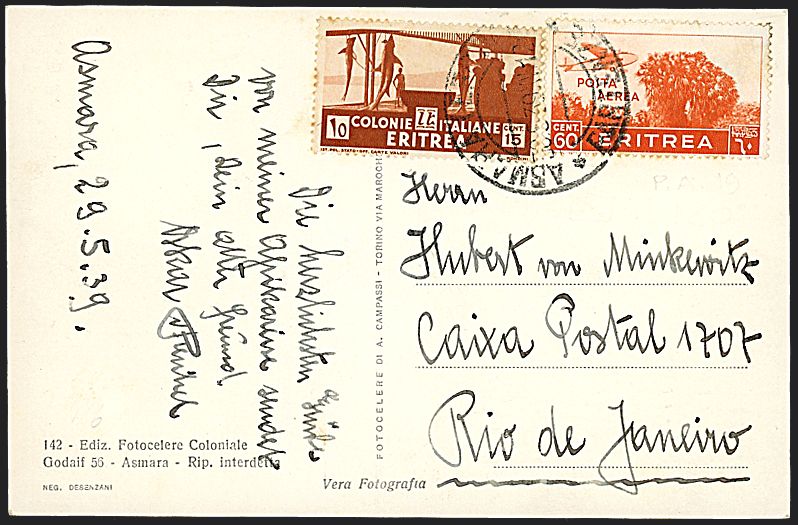 Asmara, 29.5.39.
Die herzlichsten Grüße
von meiner Afrikareise sendet
Dir, Dein alter Freund
Oskar
COLONIE ITALIANE
ERITREA
CENT. 15
IST. POL. STATO - OFF. CARTE VALORI
POSTA
AEREA
CENT.
60
ERITREA
ASMARA
P.A. 19
Herrn
Hubert von Minkewitz
Caixa Postal 1707
Rio de Janeiro
FOTOCELERE DI A. CAMPASSI - TORINO VIA MAROCHE
142 - Ediz. Fotocelere Coloniale
Godaif 56 - Asmara - Rip. interdetta
NEG. DESENZANI
Vera Fotografia